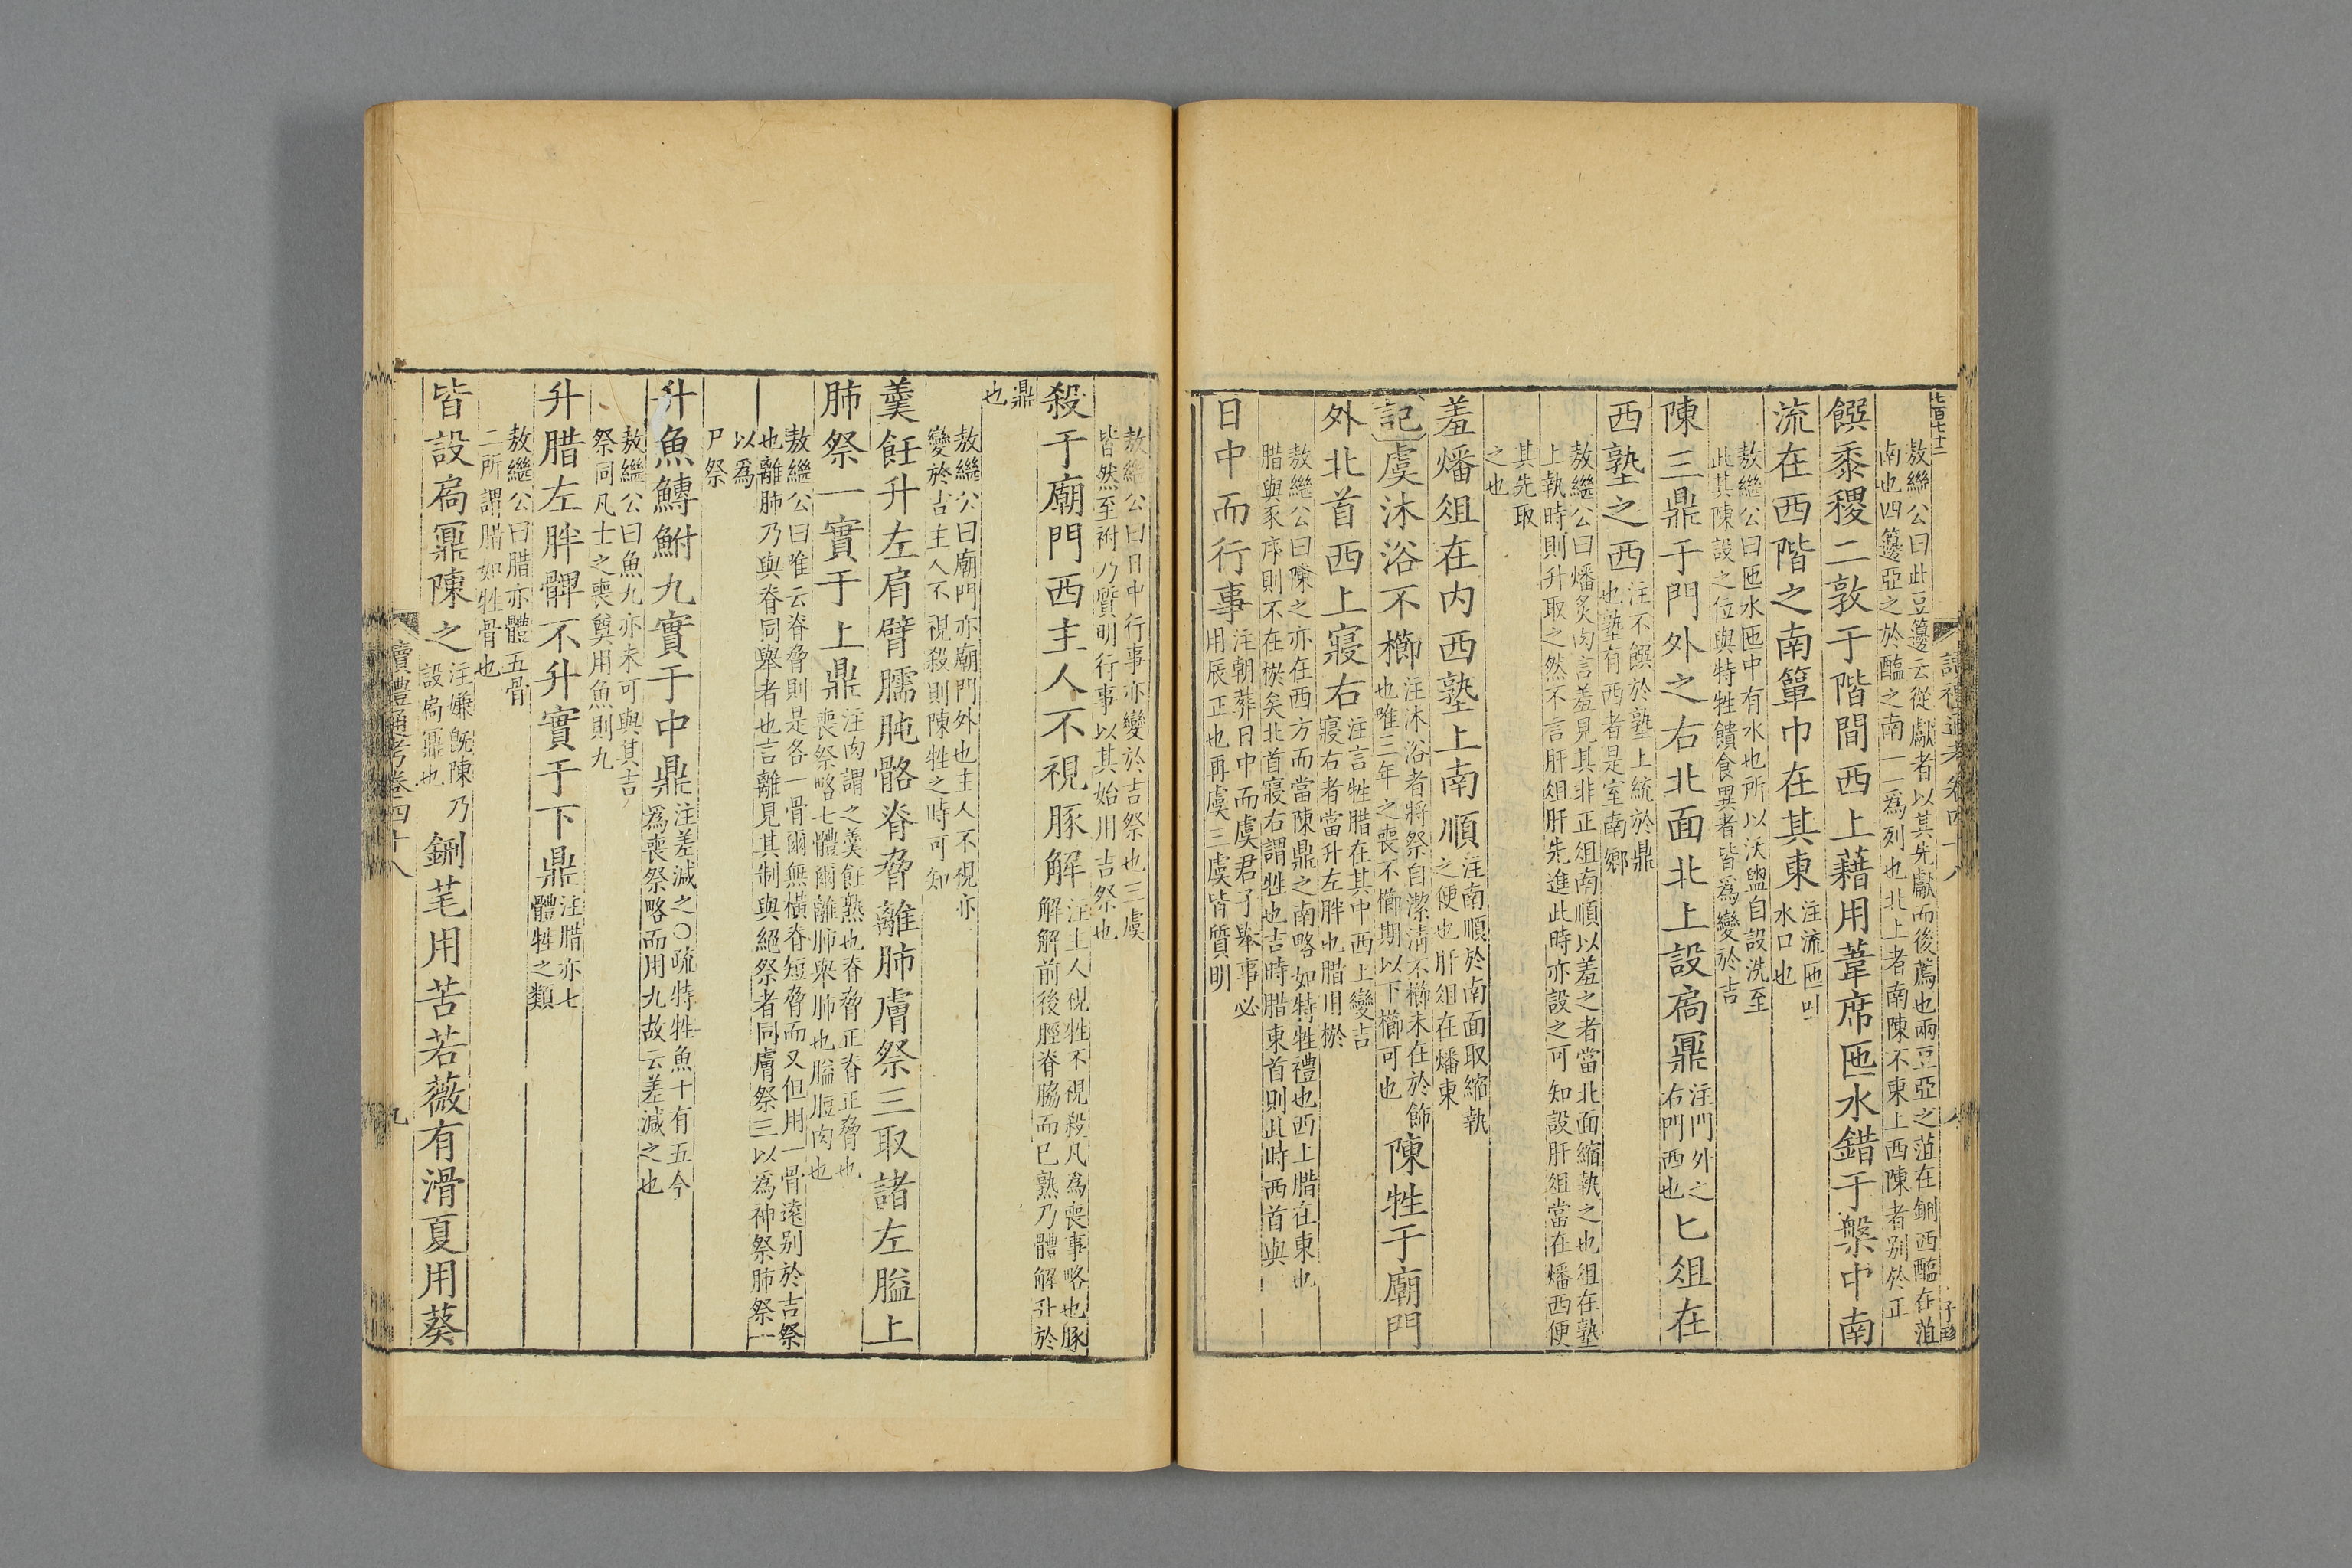 七百七十二
讀禮通考卷四十八
八
子珍
敖繼公曰此豆籩云從獻者以其先獻而後薦也兩豆亞之菹在鉶西醢在菹
南也四籩亞之於醢之南一一爲列也北上者南陳不東上西陳者别於正
饌黍稷二敦于階間西上藉用葦席匜水錯于槃中南
流在西階之南簞巾在其東注流匜吐
水口也
敖繼公曰匜水匜中有水也所以沃盥自設洗至
此其陳設之位與特牲饋食異者皆爲變於吉
陳三鼎于門外之右北面北上設扃鼏注門外之
右門西也匕俎在
西塾之西注不饌於塾上統於鼎
也塾有西者是室南鄉
敖繼公曰燔炙肉言羞見其非正俎南順以羞之者當北面縮執之也俎在塾
上執時則升取之然不言肝俎肝先進此時亦設之可知設肝俎當在燔西便
其先取
之也
羞燔俎在内西塾上南順注南順於南面取縮執
之便也肝俎在燔東
記虞沐浴不櫛注沐浴者將祭自潔清不櫛未在於飾
也唯三年之喪不櫛期以下櫛可也陳牲于廟門
外北首西上寢右注言牲腊在其中西上變吉
寢右者當升左胖也腊用棜
敖繼公曰陳之亦在西方而當陳鼎之南略如特牲禮也西上腊在東也
腊與豕序則不在棜矣北首寢右謂牲也吉時腊東首則此時西首與
日中而行事注朝葬日中而虞君子舉事必
用辰正也再虞三虞皆質明
敖繼公曰日中行事亦變於吉祭也三虞
皆然至祔乃質明行事以其始用吉祭也
殺于廟門西主人不視豚解注主人視牲不視殺凡爲喪事略也豚
解解前後脛脊脇而已熟乃體解升於
鼎
也
敖繼公曰廟門亦廟門外也主人不視亦
變於吉主人不視殺則陳牲之時可知
羹飪升左肩臂臑肫骼脊脅離肺膚祭三取諸左膉上
肺祭一實于上鼎注肉謂之羹飪熟也脊脅正脊正脅也
喪祭略七體爾離肺舉肺也膉脰肉也
敖繼公曰唯云脊脅則是各一骨爾無橫脊短脅而又但用一骨遠别於吉祭
也離肺乃與脊同舉者也言離見其制與絕祭者同膚祭三以爲神祭肺祭一
以爲
尸祭
升魚鱄鮒九實于中鼎注差減之○疏特牲魚十有五今
爲喪祭略而用九故云差減之也
敖繼公曰魚九亦未可與其吉
祭同凡士之喪奠用魚則九
升腊左胖髀不升實于下鼎注腊亦七
體牲之類
敖繼公曰腊亦體五骨
二所謂腊如牲骨也
皆設扃鼏陳之注嫌既陳乃
設扃鼏也鉶芼用苦若薇有滑夏用葵
讀禮通考卷四十八
九